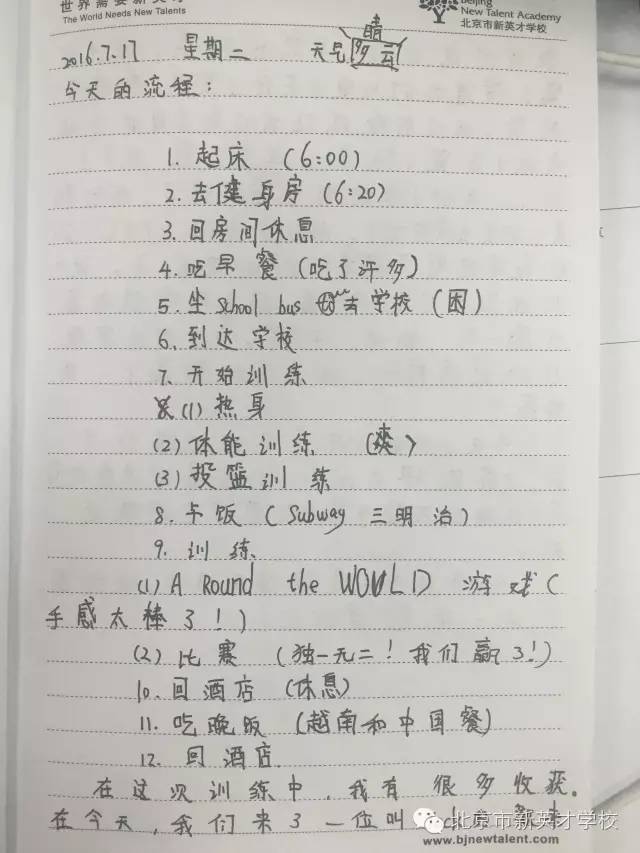 世界需要新英才
The World Needs New Talents
Beijing
New Talent Academy
北京市新英才学校
2016.7.17 星期二 天气 晴 多云
今天的流程：
1. 起床 (6:00)
2. 去健身房 (6:20)
3. 回房间休息
4. 吃早餐 (吃了许多)
5. 坐school bus 去学校 (困)
6. 到达学校
7. 开始训练
(1) 热身
(2) 体能训练 (爽)
(3) 投篮训练
8. 午饭 (Subway 三明治)
9. 训练
(1) A Round the WOULD 游戏 (
手感太棒了!)
(2) 比赛 (独一无二! 我们赢了!)
10. 回酒店 (休息)
11. 吃晚饭 (越南和中国餐)
12. 回酒店.
在这次训练中，我有很多收获。
在今天，我们来了一位叫
北京市新英才学校
www.bjnewtalent.com